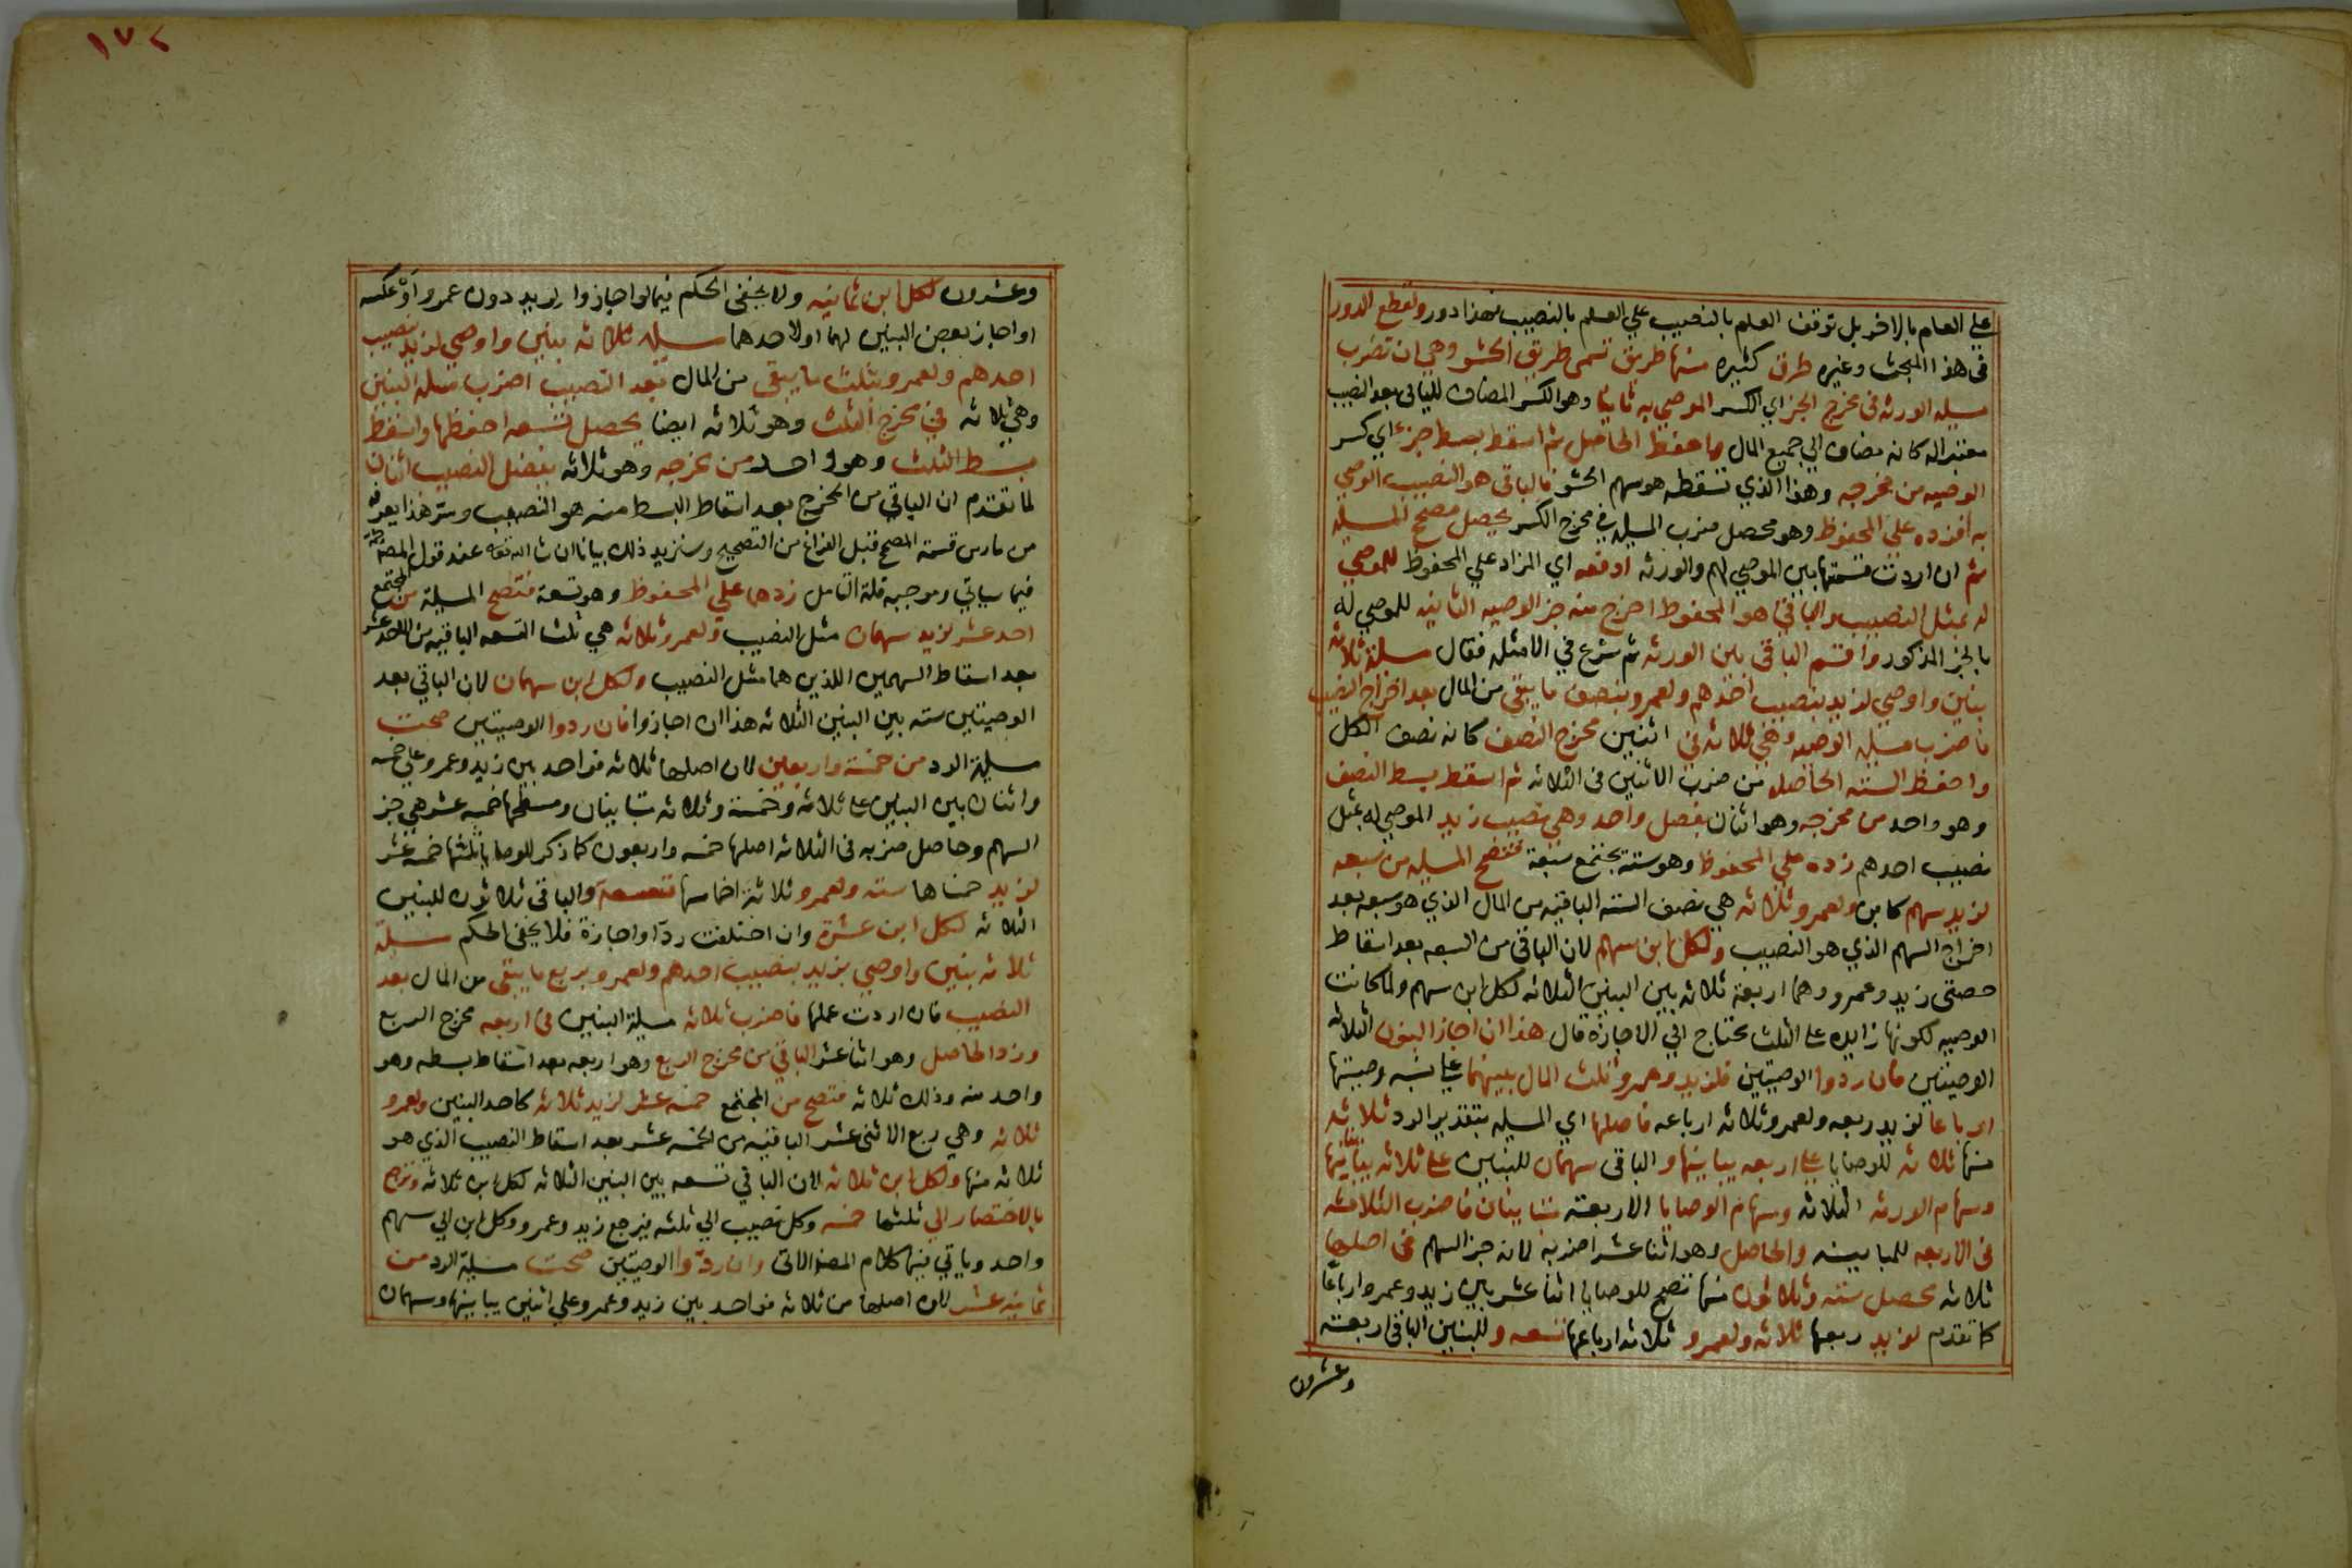 علي العلم بالاخر بل توقف العلم بالنصيب علي العلم بالنصيب فهذا دور ولقطع الدور
في هذا المبحث وغيره طرق كثيره منها طريق تسمى طريق الحشو وهي ان تضرب
مسيلة الورثه في مخرج الجزاي الكسر الموصي به ثانيا وهو الكسر المضاف للباقي بعد النصيب
معتبرا له كانه مضاف الي جميع المال واحفظ الحاصل ثم اسقط بسط جزء اي كسر
الوصيه من مخرجه وهذا الذي تسقطه هو سهم الحشو فالباقي هو النصيب الموصي
به فزده علي المحفوظ وهو محصل ضرب المسيلة في مخرج الكسر يحصل مصحح المسيلة
ثم ان اردت قسمتها بين الموصي لهم والورثه ادفعه اي المزاد علي المحفوظ للموصي
له بمثل النصيب والباقي هو المحفوظ اخرج منه جز الوصيه الثانيه للموصي له
بالجز المذكور واقسم الباقي بين الورثه ثم شرع في الامثله فقال مسيلة ثلاثة
بنين واوصي لزيد بنصيب احدهم ولعمرو بنصف ما يبقي من المال بعد اخراج النصيب
فاضرب مسيلة الوصيه وهي ثلاثه في اثنين مخرج النصف كانه نصف الكل
واحفظ الستة الحاصله من ضرب الاثنين في الثلاثه ثم اسقط بسط النصف
وهو واحد من مخرجه وهو اثنان يفضل واحد وهي نصيب زيد الموصي له بمثل
نصيب احدهم زده علي المحفوظ وهو ستة يجتمع سبعة فتصح المسيلة من سبعه
لزيد سهم كابن ولعمرو ثلاثه هي نصف الستة الباقيه من المال الذي هو سبعه بعد
اخراج السهم الذي هو النصيب ولكل ابن سهم لان الباقي من السبعه بعد اسقاط
حصتي زيد وعمرو وهما اربعة ثلاثه بين البنين الثلاثه لكل ابن سهم ولما كانت
الوصيه لكونها زايده علي الثلث تحتاج الي الاجازة قال هذا ان اجاز البنون الثلاثه
الوصيتين فان ردوا الوصيتين فلزيد وعمرو ثلث المال بينهما علي نسبة وصيتها
ارباعا لزيد ربعه ولعمرو ثلاثه ارباعه فاصلها اي المسيلة بتقدير الرد ثلاثه
منها ثلاثه للوصايا علي اربعه يباينها والباقي سهمان للبنين علي ثلاثه يباينها
وسهام الورثه الثلاثه وسهام الوصايا الاربعة متباينان فاضرب الثلاثة
في الاربعه للمباينه والحاصل وهو اثنا عشر اضربه لانه جز السهم في اصلها
ثلاثه يحصل ستة وثلاثون منها تصح للوصايا اثنا عشر بين زيد وعمرو ارباعا
كما تقدم لزيد ربعها ثلاثه ولعمرو ثلاثه ارباعها تسعه وللبنين الباقي اربعة
وعشرون
١٧٢
وعشرون لكل ابن ثمانيه ولا يخفي الحكم فيما لو اجازوا لزيد دون عمرو او عكسه
او اجاز بعض البنين لهما او لاحدهما مسيلة ثلاثه بنين واوصي لزيد بنصيب
احدهم ولعمرو بثلث ما يبقي من المال بعد النصيب اضرب مسلة البنين
وهي ثلاثه في مخرج الثلث وهو ثلاثه ايضا يحصل تسعه احفظها واسقط
بسط الثلث وهو واحد من مخرجه وهو ثلاثه يفضل النصيب اثنان
لما تقدم ان الباقي من المخرج بعد اسقاط البسط منه هو النصيب وسر هذا يعرفه
من مارس قسمة المصحح قبل الفراغ من التصحيح وسنزيد ذلك بيانا ان شا الله تعالي عند قول المصنف
فيما سياتي وموجبه قلة التامل زدهما علي المحفوظ وهو تسعة فتصح المسيلة من المجتمع
احد عشر لزيد سهمان مثل النصيب ولعمرو ثلاثه هي ثلث التسعه الباقيه من الاحد عشر
بعد اسقاط السهمين اللذين هما مثل النصيب ولكل ابن سهمان لان الباقي بعد
الوصيتين سته بين البنين الثلاثه هذا ان اجازوا فان ردوا الوصيتين صحت
مسيلة الرد من خمسة واربعين لان اصلها ثلاثه فواحد بين زيد وعمرو علي خمسه
واثنان بين البنين علي ثلاثه وخمسة وثلاثه متباينان ومسطحهما خمسه عشر هي جز
السهم وحاصل ضربه في الثلاثه اصلها خمسه واربعون كما ذكر للوصايا ثلثها خمسه عشر
لزيد خمساها سته ولعمرو ثلاثة اخماسها تسعه والباقي ثلاثون للبنين
الثلاثه لكل ابن عشرة وان اختلفت ردا واجازة فلا يخفي الحكم مسيلة
ثلاثه بنين واوصي لزيد بنصيب احدهم ولعمرو بربع ما يبقي من المال بعد
النصيب فان اردت عملها فاضرب ثلاثه مسيلة البنين في اربعه مخرج الربع
وزد الحاصل وهو اثنا عشر الباقي من مخرج الربع وهو اربعه بعد اسقاط بسطه وهو
واحد منه وذلك ثلاثه فتصح من المجتمع خمسه عشر لزيد ثلاثه كاحد البنين ولعمرو
ثلاثه وهي ربع الاثني عشر الباقيه من الخمسه عشر بعد اسقاط النصيب الذي هو
ثلاثه منها ولكل ابن ثلاثه لان الباقي تسعه بين البنين الثلاثه لكل ابن ثلاثه وترجع
بالاختصار الي ثلثها خمسه وكل نصيب الي ثلثه فيرجع زيد وعمرو وكل ابن الي سهم
واحد وياتي فيها كلام المصنف الاتي وان ردوا الوصيتين صحت مسيلة الرد من
ثمانيه عشر لان اصلها من ثلاثه فواحد بين زيد وعمرو علي اثنين يباينها وسهمان